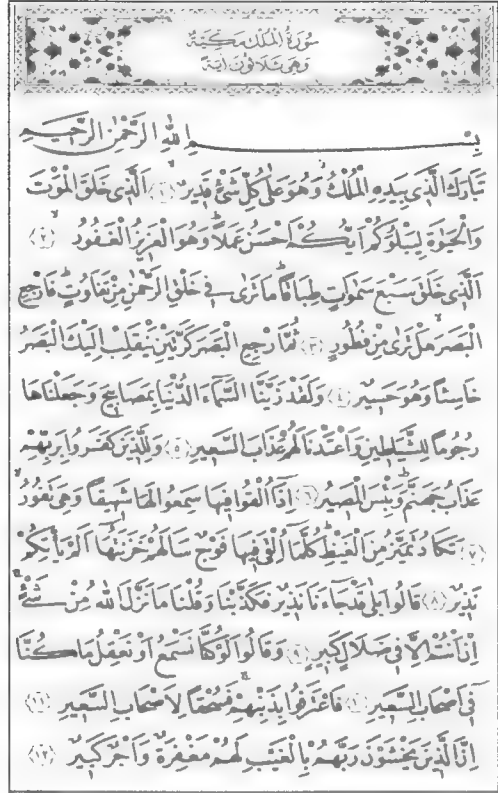 سُورَةُ الْمُلْكِ مَكِّيَّةٌ
وَهِيَ ثَلَاثُونَ اٰيَةً
بِسْمِ اللهِ الرَّحْمٰنِ الرَّحِيمِ
تَبَارَكَ الَّذِى بِيَدِهِ الْمُلْكُ وَهُوَ عَلٰى كُلِّ شَىْءٍ قَدِيرٌ ﴿١﴾ اَلَّذِى خَلَقَ الْمَوْتَ
وَالْحَيٰوةَ لِيَبْلُوَكُمْ اَيُّكُمْ اَحْسَنُ عَمَلاً وَهُوَ الْعَزِيزُ الْغَفُورُ ﴿٢﴾
اَلَّذِى خَلَقَ سَبْعَ سَمٰوَاتٍ طِبَاقًا مَا تَرٰى فِى خَلْقِ الرَّحْمٰنِ مِنْ تَفَاوُتٍ فَارْجِعِ
الْبَصَرَ هَلْ تَرٰى مِنْ فُطُورٍ ﴿٣﴾ ثُمَّ ارْجِعِ الْبَصَرَ كَرَّتَيْنِ يَنْقَلِبْ اِلَيْكَ الْبَصَرُ
خَاسِئًا وَهُوَ حَسِيرٌ ﴿٤﴾ وَلَقَدْ زَيَّنَّا السَّمَاءَ الدُّنْيَا بِمَصَابِيحَ وَجَعَلْنَاهَا
رُجُومًا لِلشَّيَاطِينِ وَاَعْتَدْنَا لَهُمْ عَذَابَ السَّعِيرِ ﴿٥﴾ وَلِلَّذِينَ كَفَرُوا بِرَبِّهِمْ
عَذَابُ جَهَنَّمَ وَبِئْسَ الْمَصِيرُ ﴿٦﴾ اِذَا اُلْقُوا فِيهَا سَمِعُوا لَهَا شَهِيقًا وَهِىَ تَفُورُ
﴿٧﴾ تَكَادُ تَمَيَّزُ مِنَ الْغَيْظِ كُلَّمَا اُلْقِىَ فِيهَا فَوْجٌ سَاَلَهُمْ خَزَنَتُهَا اَلَمْ يَأْتِكُمْ
نَذِيرٌ ﴿٨﴾ قَالُوا بَلٰى قَدْ جَاءَنَا نَذِيرٌ فَكَذَّبْنَا وَقُلْنَا مَا نَزَّلَ اللهُ مِنْ شَىْءٍ
اِنْ اَنْتُمْ اِلَّا فِى ضَلَالٍ كَبِيرٍ ﴿٩﴾ وَقَالُوا لَوْ كُنَّا نَسْمَعُ اَوْ نَعْقِلُ مَا كُنَّا
فِى اَصْحَابِ السَّعِيرِ ﴿١٠﴾ فَاعْتَرَفُوا بِذَنْبِهِمْ فَسُحْقًا لِاَصْحَابِ السَّعِيرِ ﴿١١﴾
اِنَّ الَّذِينَ يَخْشَوْنَ رَبَّهُمْ بِالْغَيْبِ لَهُمْ مَغْفِرَةٌ وَاَجْرٌ كَبِيرٌ ﴿١٢﴾